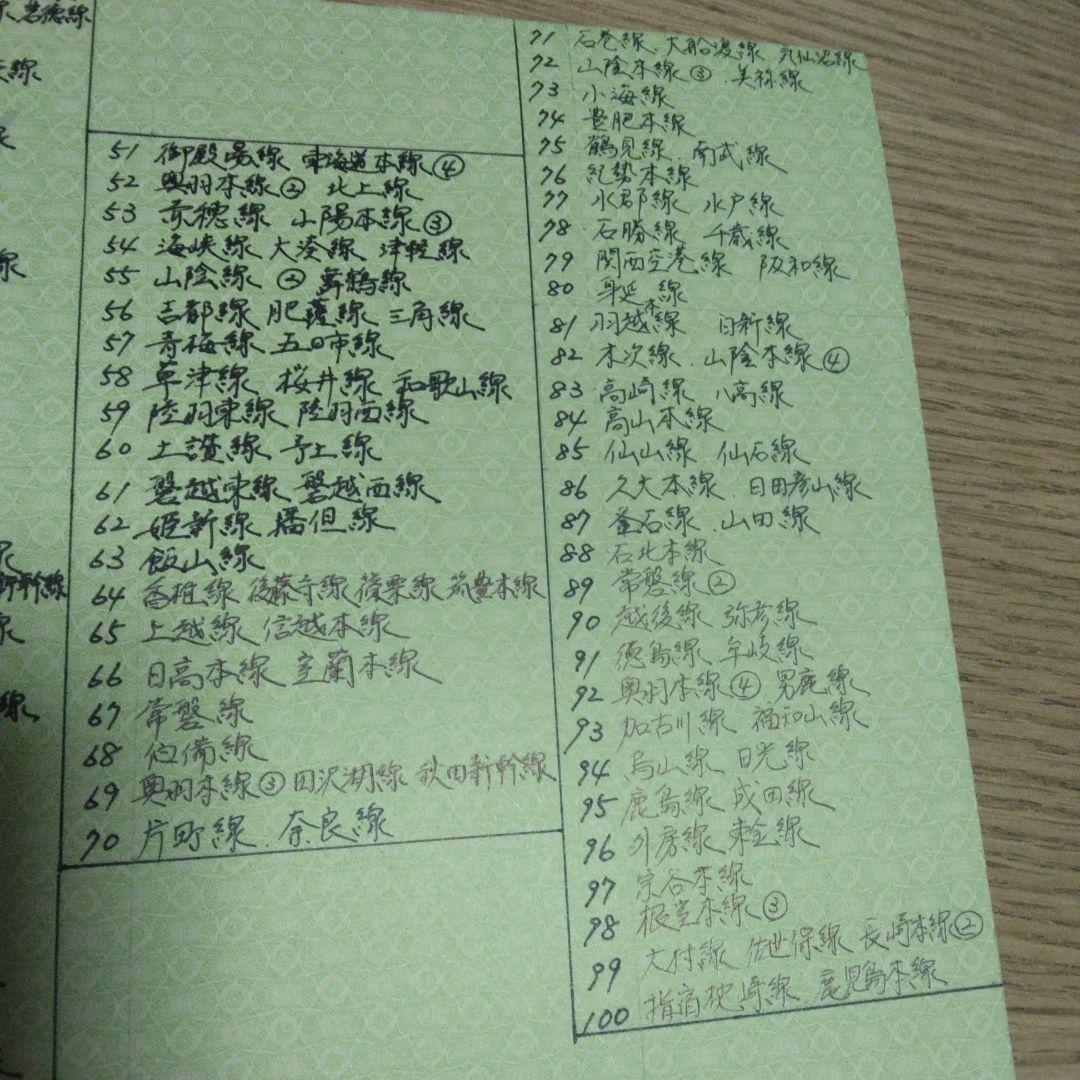 老德線
線
51 御殿場線 東海道本線④
52 奥羽本線② 北上線
53 赤穂線 山陽本線③
54 海峡線 大湊線 津軽線
55 山陰線② 舞鶴線
56 吉都線 肥薩線 三角線
57 青梅線 五日市線
58 草津線 桜井線 和歌山線
59 陸羽東線 陸羽西線
60 土讃線 予土線
61 磐越東線 磐越西線
62 姫新線 播但線
63 飯山線
64 香椎線 後藤寺線 篠栗線 筑豊本線
65 上越線 信越本線
66 日高本線 室蘭本線
67 常磐線
68 伯備線
69 奥羽本線③ 田沢湖線 秋田新幹線
70 片町線、奈良線
71 石巻線、大船渡線、気仙沼線
72 山陰本線③、美祢線
73 小海線
74 豊肥本線
75 鶴見線、南武線
76 紀勢本線
77 水郡線 水戸線
78 石勝線 千歳線
79 関西空港線 阪和線
80 身延線
81 羽越本線 白新線
82 木次線、山陰本線④
83 高崎線 八高線
84 高山本線
85 仙山線 仙石線
86 久大本線、日田彦山線
87 釜石線、山田線
88 石北本線
89 常磐線②
90 越後線 弥彦線
91 徳島線 牟岐線
92 奥羽本線④ 男鹿線
93 加古川線 福知山線
94 烏山線 日光線
95 鹿島線 成田線
96 外房線 東金線
97 宗谷本線
98 根室本線③
99 大村線 佐世保線 長崎本線②
100 指宿枕崎線、鹿児島本線